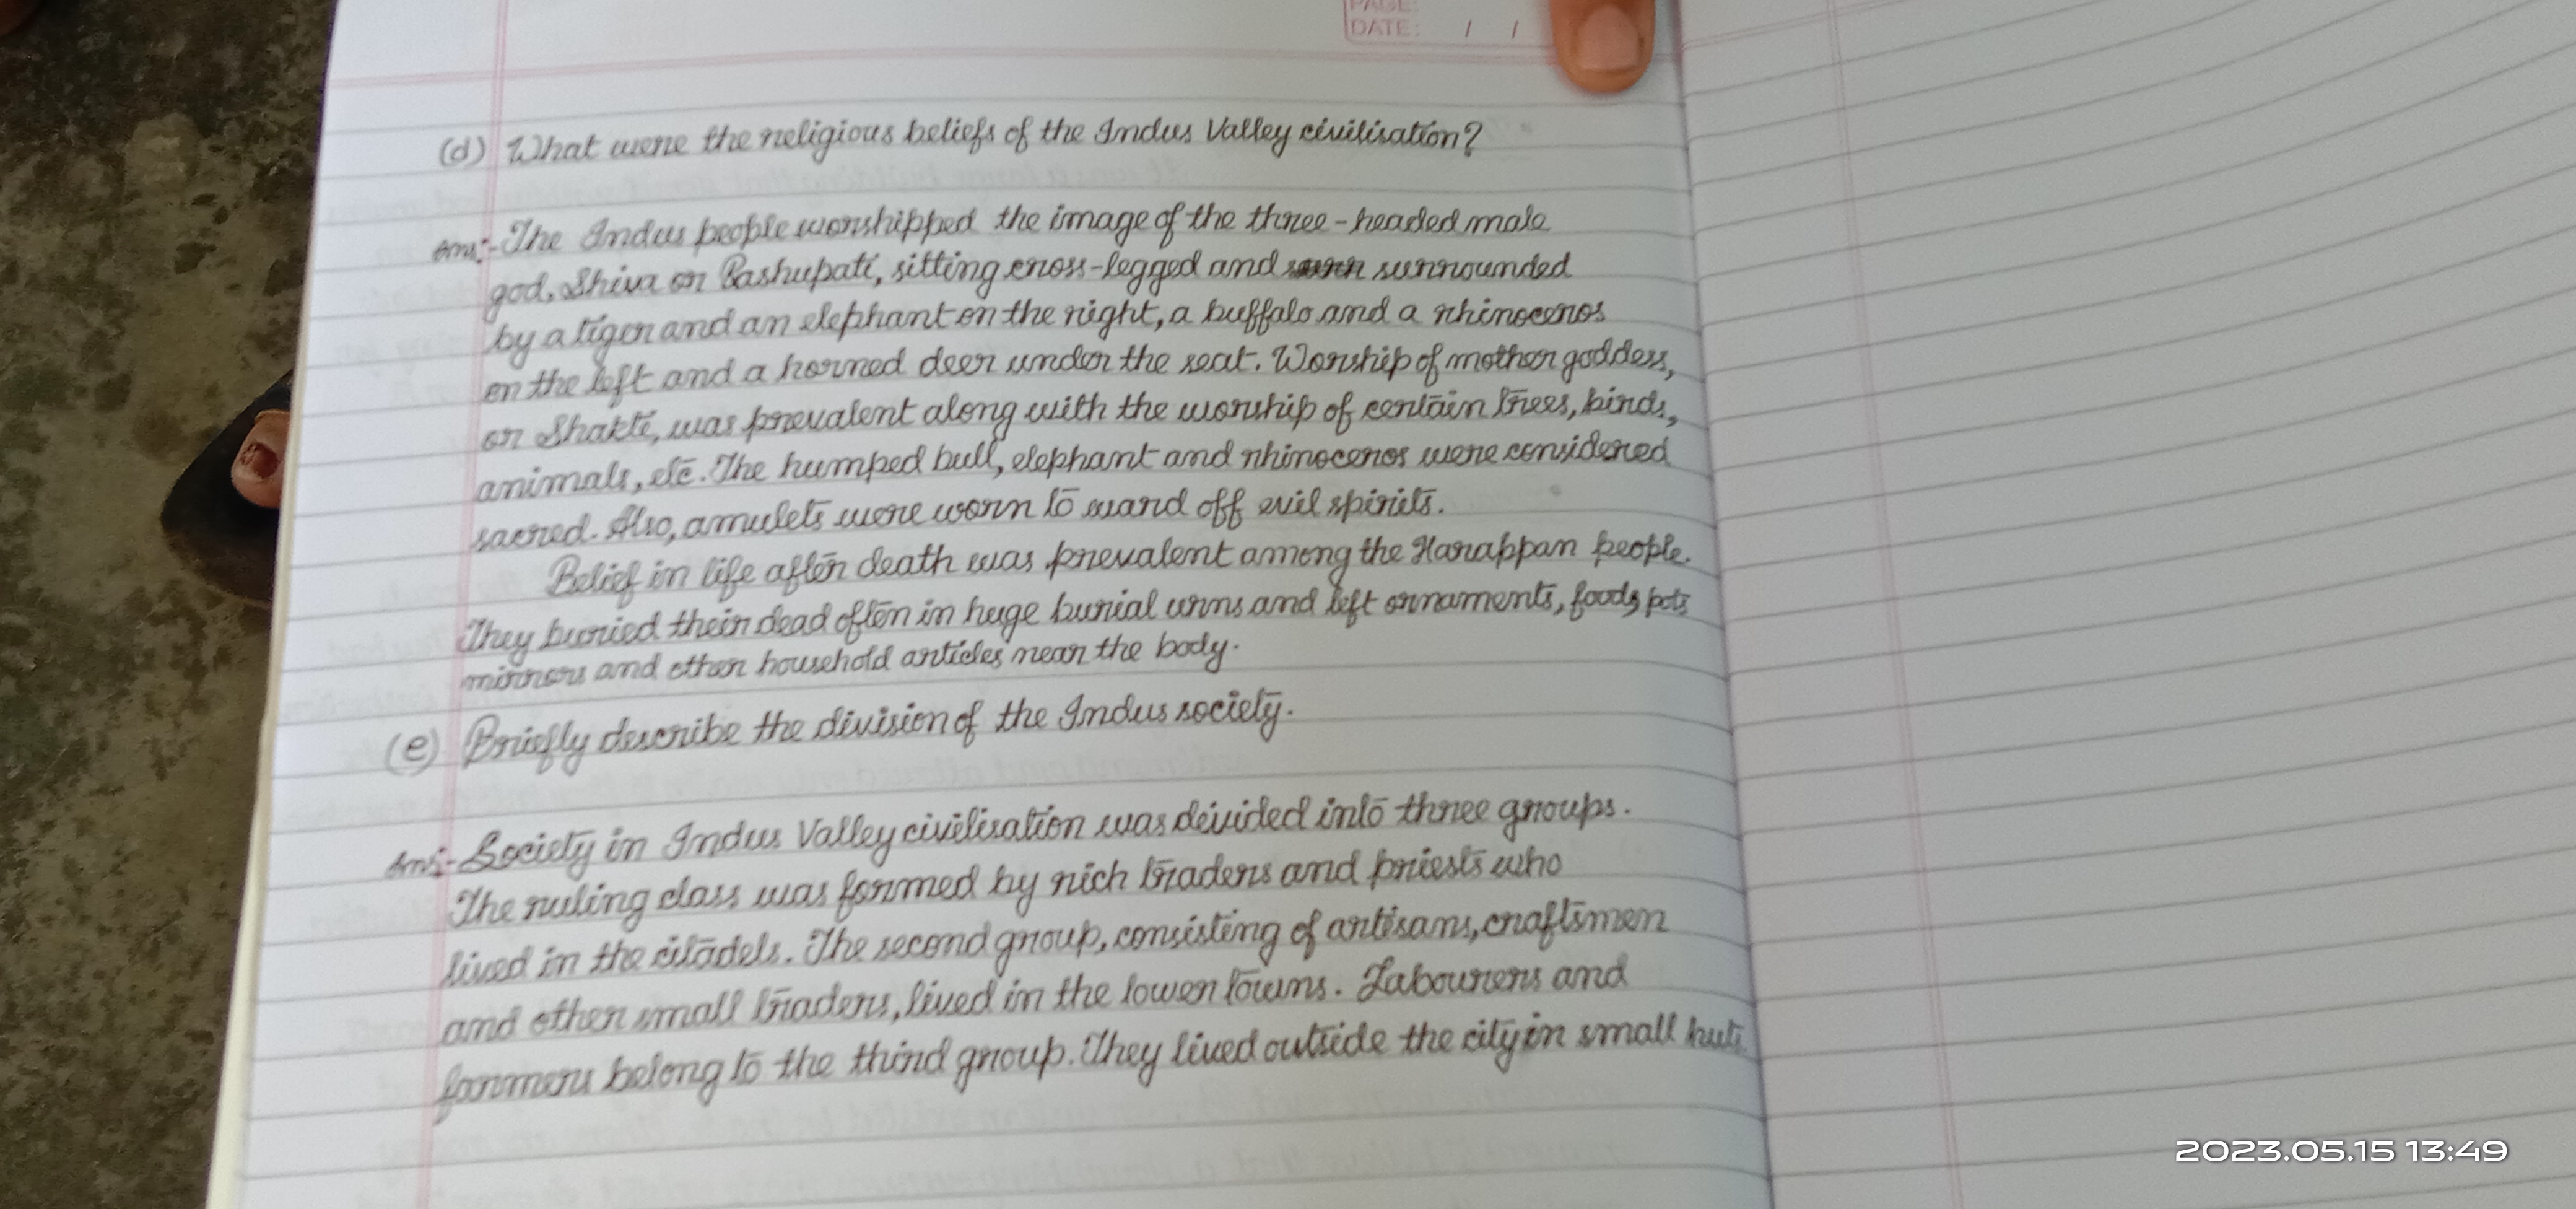 PAGE:
DATE: / /
(d) What were the religious beliefs of the Indus Valley civilisation?
Ans:- The Indus people worshipped the image of the three-headed male
god, Shiva or Pashupati, sitting cross-legged and surrounded
by a tiger and an elephant on the right, a buffalo and a rhinoceros
on the left and a horned deer under the seat. Worship of mother goddess,
or Shakti, was prevalent along with the worship of certain trees, birds,
animals, etc. The humped bull, elephant and rhinoceros were considered
sacred. Also, amulets were worn to ward off evil spirits.
Belief in life after death was prevalent among the Harappan people.
They buried their dead often in huge burial urns and left ornaments, foods, pots
mirrors and other household articles near the body.
(e) Briefly describe the division of the Indus society.
Ans:- Society in Indus Valley civilisation was deivided into three groups.
The ruling class was formed by rich traders and priests who
lived in the citadels. The second group, consisting of artisans, craftsmen
and other small traders, lived in the lower towns. Labourers and
farmers belong to the third group. They lived outside the city in small huts
2023.05.15 13:49